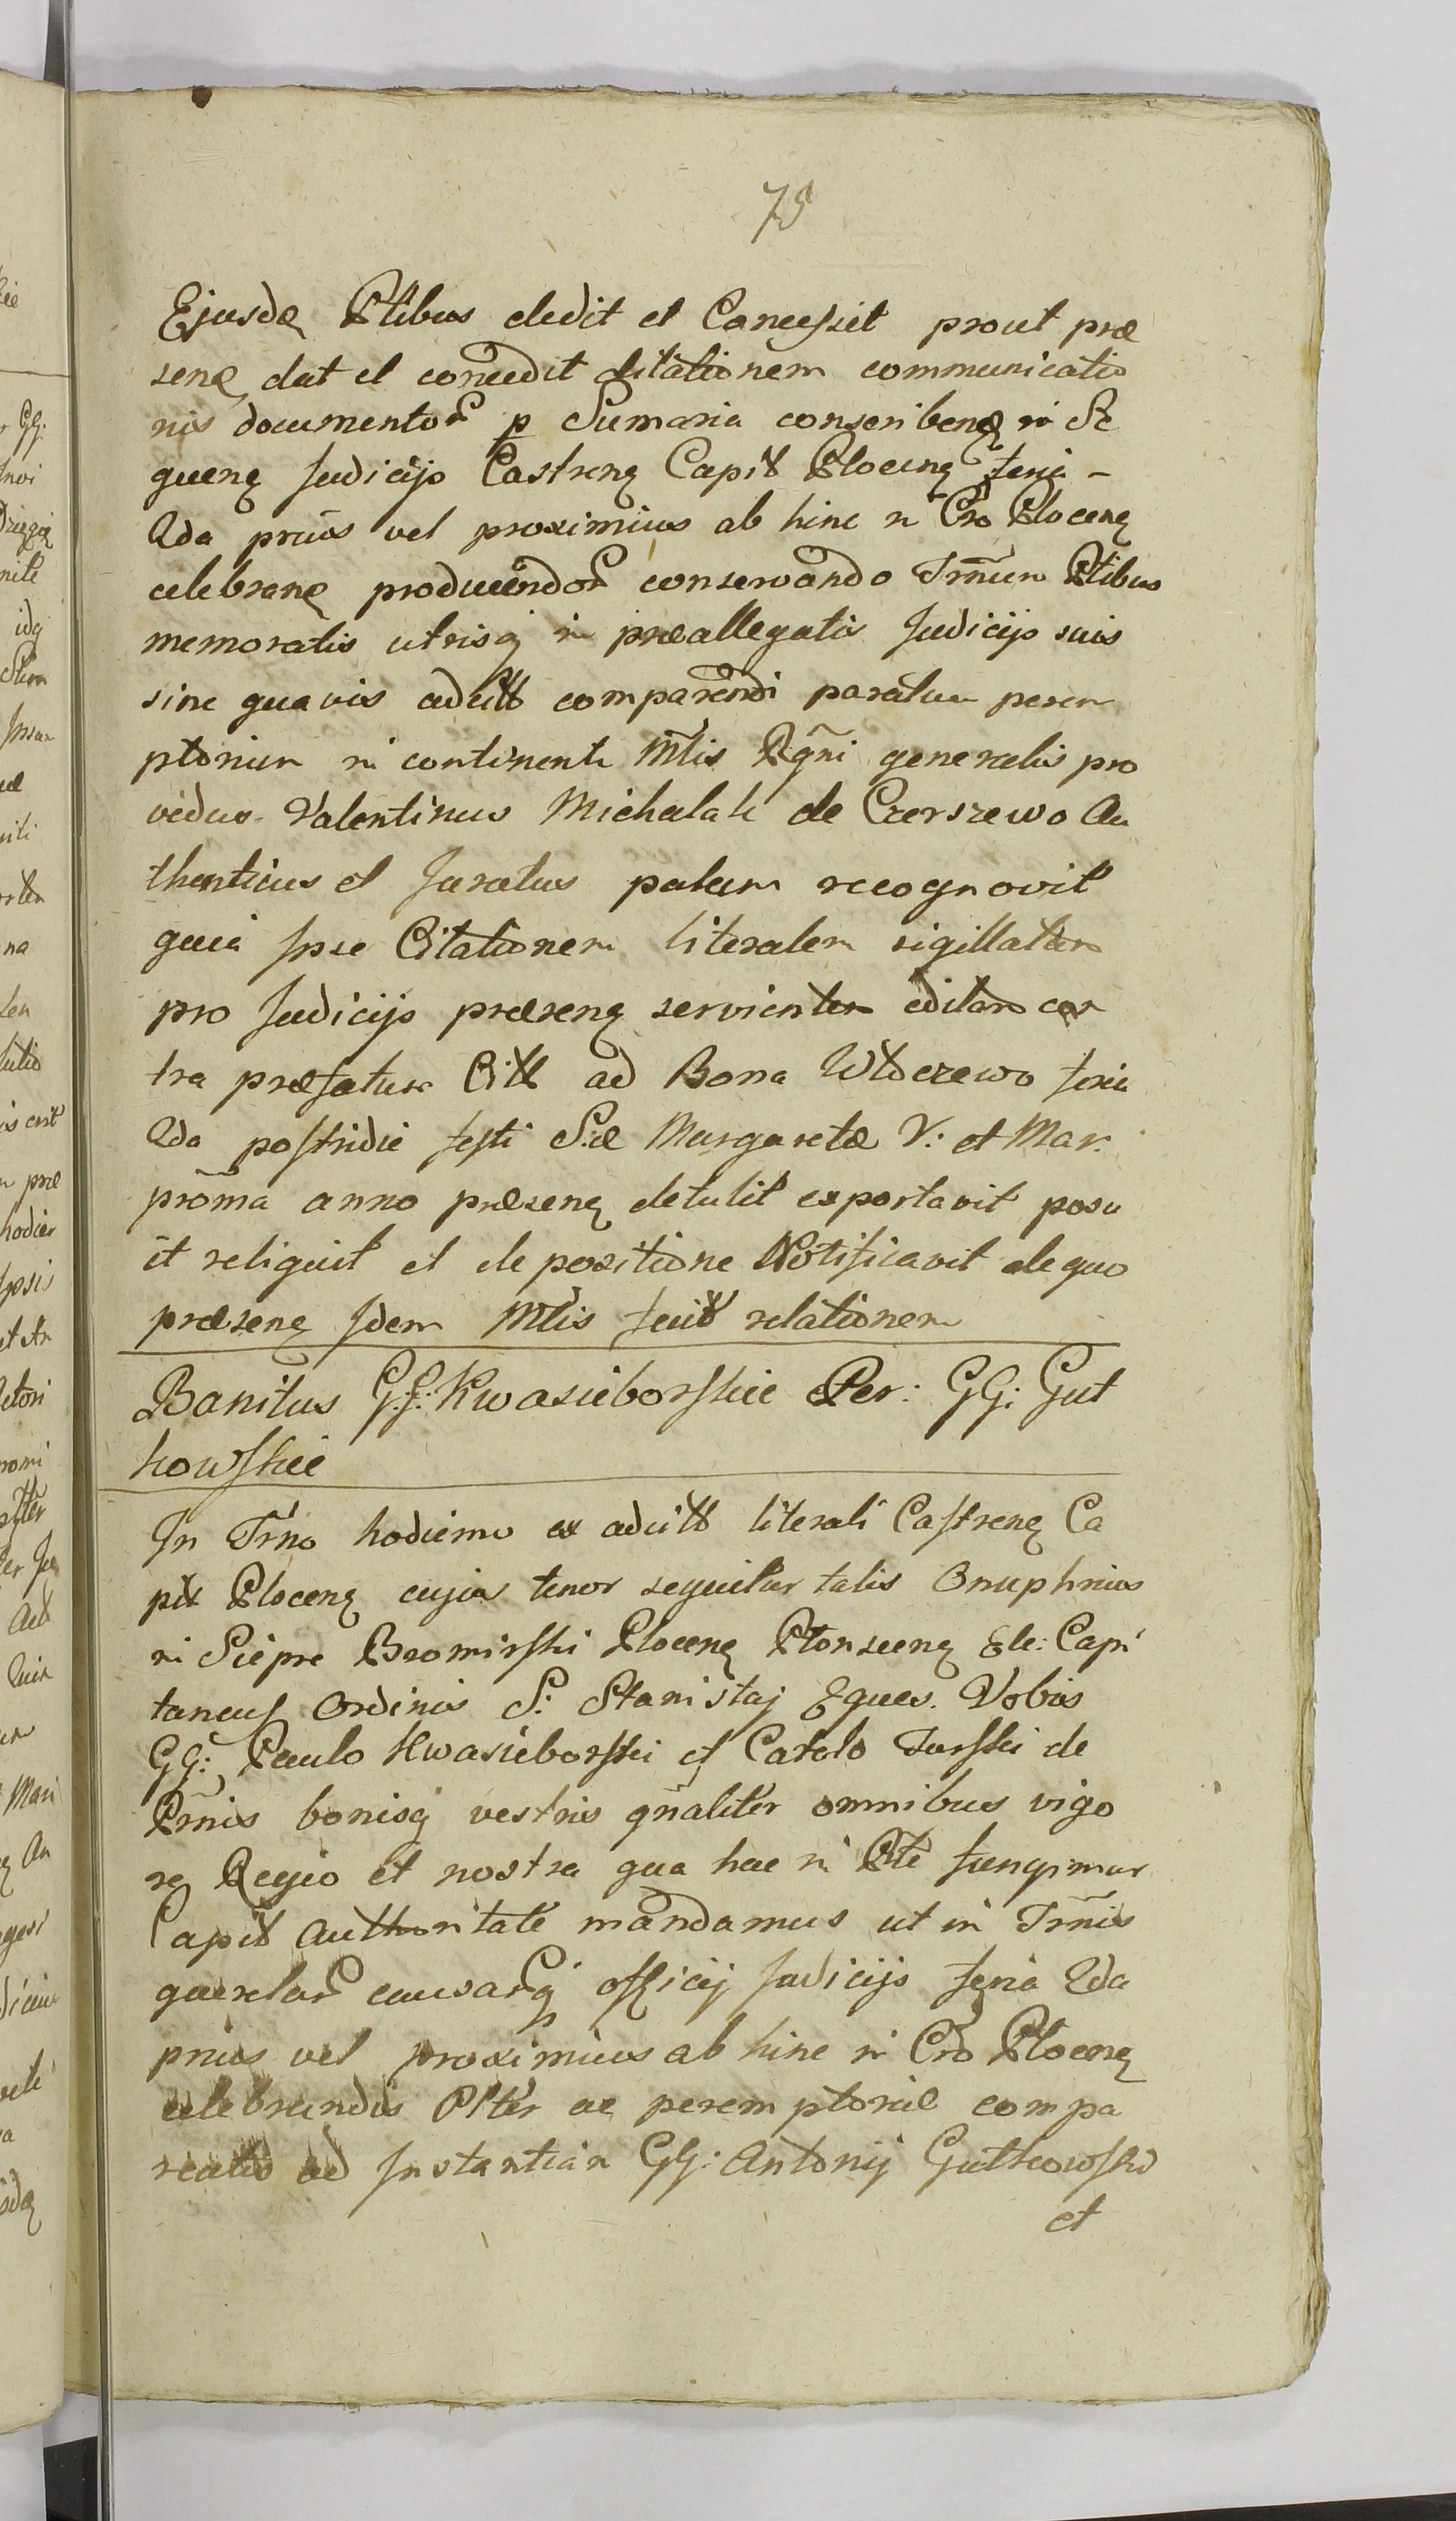 75
Ejusdę Ptibus dedit et Concessit prout præ
senę dat et concedit dilationem communicatio
nis documentor p Sumaria conscribenę in Se
quenę Judicijs Castrenę Capit Plocenę feria –
2da prius vel proximius ab hinc in Cro Plocenę
celebranę producendor conservando Trmum Ptibus
memoratis utrisq in præallegatis Judicijs suis
sine quavis adcitt comparendi paratum perem
ptorium in continenti Mtis Rgni generalis pro
vidus Valentinus Michalak de Czerszewo Au
thenticus et Juratus palam recognovit
quia Ipse Citationem literalem sigillatam
pro Judicijs præsenę servientem editam con
tra præfatum Citt ad Bona Wtdczewo feria
2da postridie festi S:æ Margaretæ V: et Mar:
proma anno præsenę detulit exportavit posu
it reliquit et de positione Notificavit de quo
præsenę Idem Mtis fecit relationem
Banitus GG: Kwasieborskie Per: GG: Gut
kowskie
In Trno hodierno ex adcitt literali Castrenę Ca
pit Plocenę cujus tenor sequitur talis Onuphrius
in Siepre Bromirski Plocenę Plonscenę Etc: Capi
taneus Ordinis S: Stanislaj Eques. Vobis
GG: Paulo Kwasieborski et Carolo Turski de
Prnis bonisq vestris gnaliter omnibus vigo
re Regio et nostra qua hac in Pte fungimur
Capit Authoritate mandamus ut in Trnis
querelar causarq officij Judicijs feria 2da
prius vel proximius ab hinc in Cro Plocenę
celebrandis Plter ac peremptorie compa
reatis ad Instantiam GG: Antonij Gutkowski
et